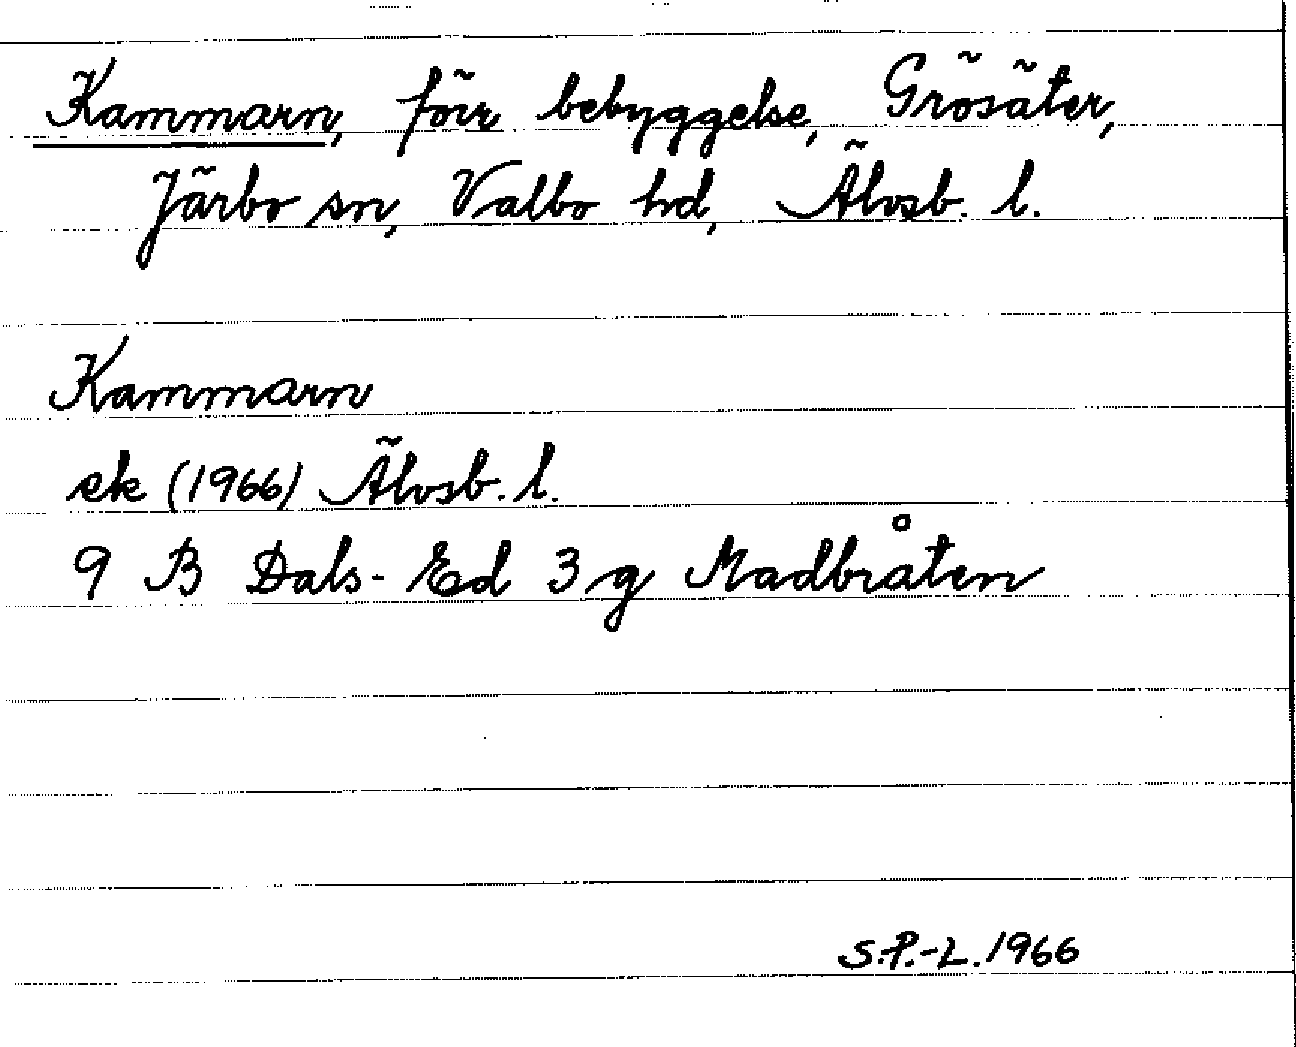 Kammarn, förr bebyggelse, Grösäter,
Järbo sn, Valbo hd, Älvsb. l.
Kammarn
ek (1966) Älvsb. l.
9 B Dals-Ed 3 g Madbråten
S.P.-L. 1966